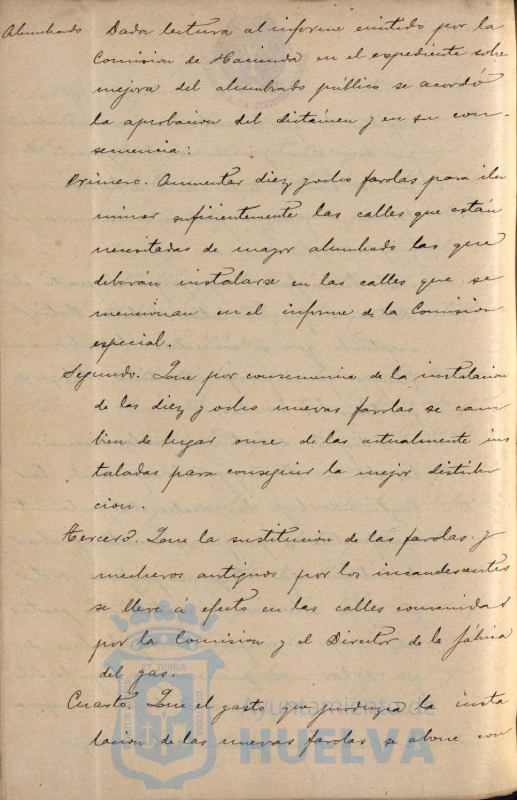 Alumbrado Dada lectura al informe emitido por la
Comision de Hacienda en el expediente sobre
mejora del alumbrado público se acordó
la aprobacion del dictámen y en su con-
secuencia:
Primero. Aumentar diez y ocho farolas para ilu
minar suficientemente las calles que están
necesitadas de mayor alumbrado las que
deberán instalarse en las calles que se
mencionan en el informe de la Comision
especial.
Segundo. Que por consecuencia de la instalacion
de las diez y ocho nuevas farolas se cam
bien de lugar once de las actualmente ins
taladas para conseguir la mejor distribu
cion.
Tercero. Que la sustitucion de las farolas y
mecheros antiguos por los incandescentes
se lleve á efecto en las calles convenidas
por la Comision y el Director de la fábrica
del gas.
Cuarto. Que el gasto que produzca la insta
lacion de las nuevas farolas se abone con
Ayuntamiento de
HUELVA